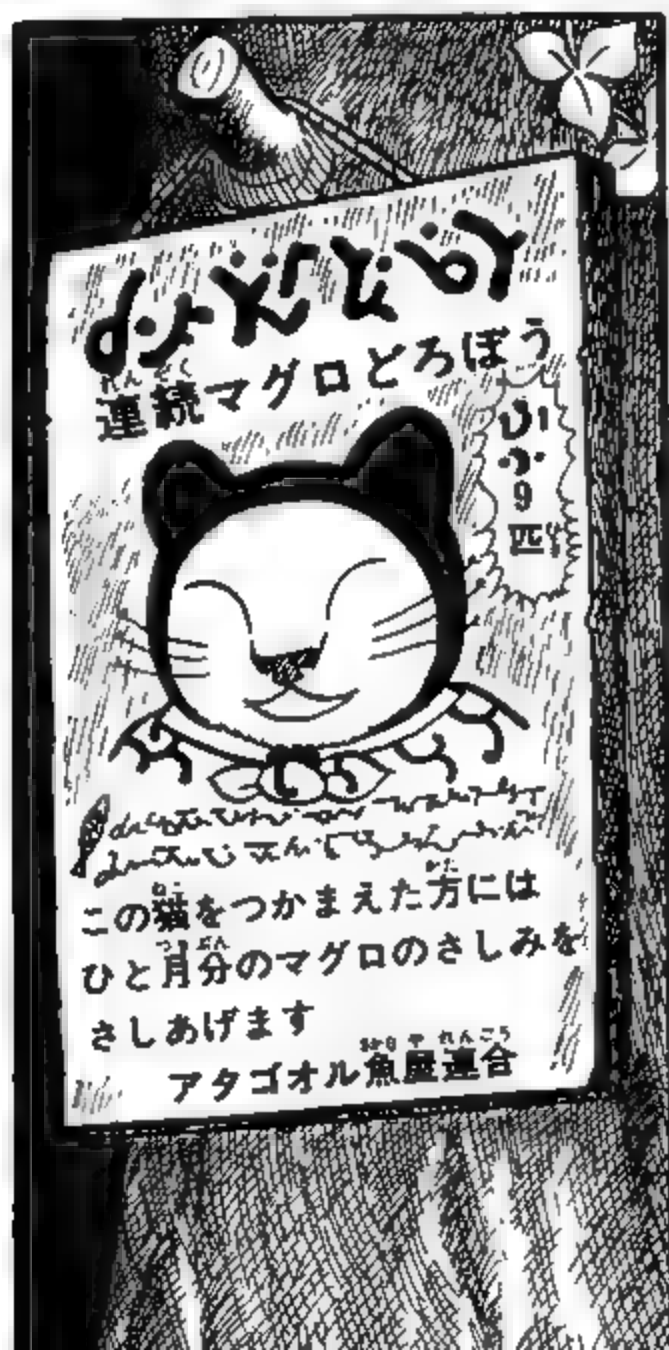 連続マグロどろぼう
9
匹
この猫をつかまえた方には
ひと月分のマグロのさしみを
さしあげます
アタゴオル魚屋連合